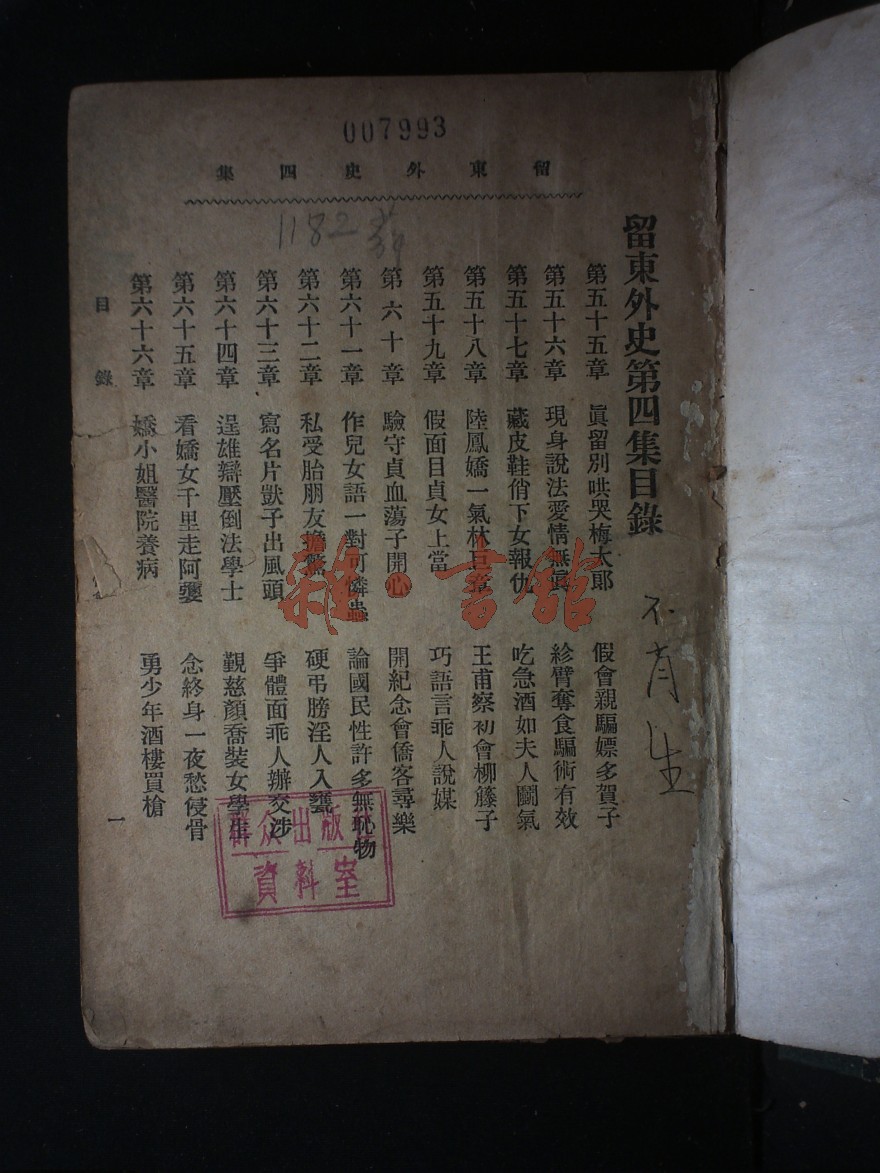 007993
留東外史四集
1182
留東外史第四集目錄
不肖生
第五十五章 眞留別哄哭梅太郎 假會親騙嫖多賀子
第五十六章 現身說法愛情無眞 紾臂奪食騙術有效
第五十七章 藏皮鞋俏下女報仇 吃急酒如夫人鬭氣
第五十八章 陸鳳嬌一氣林巨章 王甫察初會柳藤子
第五十九章 假面目貞女上當 巧語言乖人說媒
第六十章 驗守貞血蕩子開心 開紀念會僑客尋樂
第六十一章 作兒女語一對可憐蟲 論國民性許多無恥物
第六十二章 私受胎朋友擔驚 硬弔膀淫人入甕
第六十三章 寫名片獃子出風頭 爭體面乖人辦交涉
第六十四章 逞雄辯壓倒法學士 覲慈顏喬裝女學生
第六十五章 看嬌女千里走阿奶 念終身一夜愁侵骨
第六十六章 嬌小姐醫院養病 勇少年酒樓買槍
目錄
一
雜·書館
群众出版社
資料室